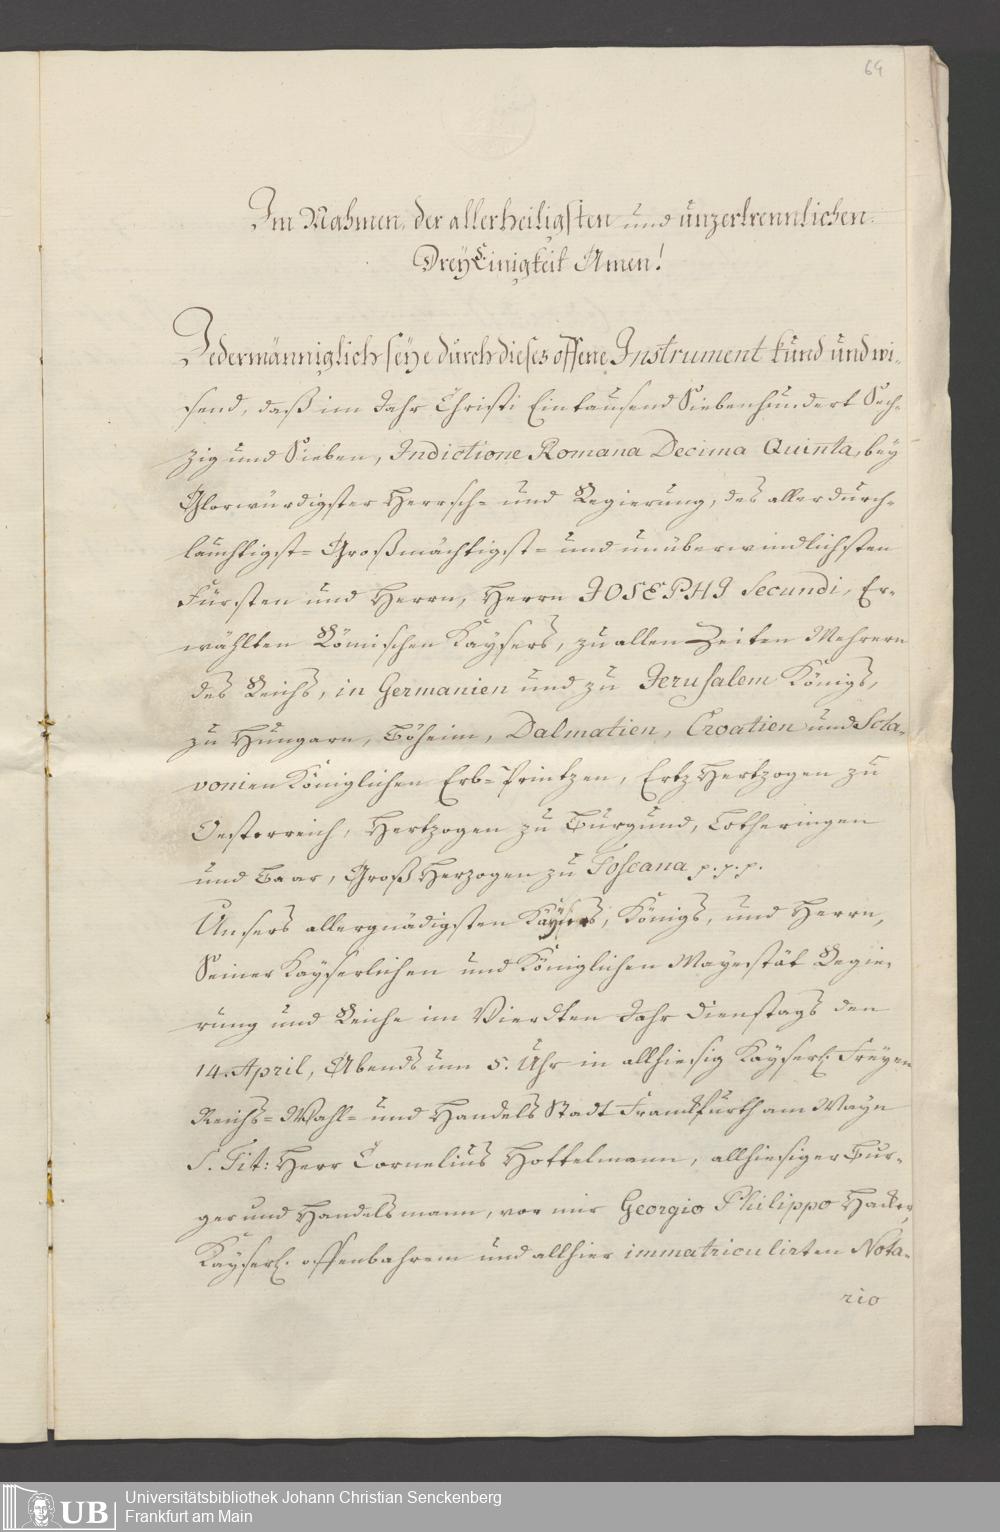 64
Im Nahmen der allerheiligsten und unzertrennlichen
DreyEinigkeit Amen!
Jedermänniglich seye durch dieses offene Instrument kund und wi-
send, daß im Jahr Christi Eintausend Siebenhundert Sech-
zig und Sieben, Indictione Romana Decima Quinta, bey
Glorwürdigster Herrsch- und Regierung, des allerdurch-
lauchtigst- Großmächtigst- und unüberwindlichsten
Fürsten und Herrn, Herrn JOSEPHI Secundi, Er-
wählten Römischen Kaysers, zu allen Zeiten Mehrern
des Reichs, in Germanien und zu Jerusalem Königs,
zu Hungarn, Böheim, Dalmatien, Croatien und Scla-
vonien Königlichen Erb-Printzen, Ertz Hertzogen zu
Oesterreich, Hertzogen zu Burgund, Lotheringen
und Baar, Groß Herzogen zu Toscana p. p. p.
Unsers allergnädigsten Kaysers, Königs, und Herrn,
Seiner Kayserlichen und Königlichen Mayestät Regie-
rung und Reiche im Vierdten Jahr Dienstags den
14. April, Abends um 5. Uhr in allhiesig Kayserl. Freyen
Reichs- Wahl- und Handels Stadt Franckfurth am Mayn
S. Tit: Herr Cornelius Hottelmann, allhiesiger Bur-
ger und Handelsmann, vor mir Georgio Philippo Hacker,
Kayserl. offenbahrem und allhier immatriculirten Nota-
rio
UB
Universitätsbibliothek Johann Christian Senckenberg
Frankfurt am Main